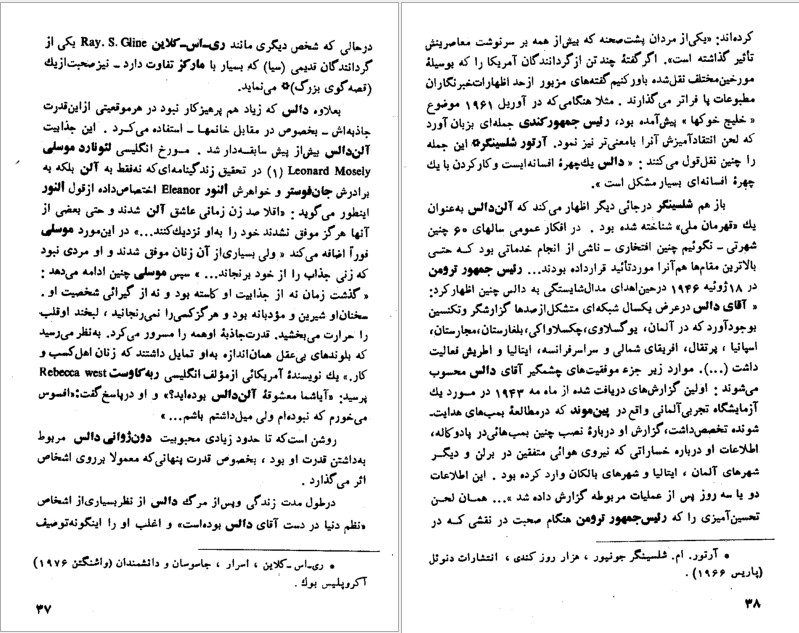 درحالی که شخص دیگری مانند ری‌ـ‌اس‌ـ‌کلاین Ray. S. Gline یکی از
گردانندگان قدیمی (سیا) که بسیار با مارکز تفاوت دارد ـ نیز صحبت از یك
(قصه‌گوی بزرگ)✿ می‌نماید.
بعلاوه دالس که زیاد هم پرهیزکار نبود در هرموقعیتی ازاین‌قدرت
جاذبه‌اش ـ بخصوص در مقابل خانمها ـ استفاده می‌کرد . این جذابیت
آلن‌دالس بیش‌از پیش سابقه‌دار شد . مورخ انگلیسی لئونارد موسلی
Leonard Mosely (۱) در تحقیق زندگینامه‌ای که نه‌فقط به آلن بلکه به
برادرش جان‌فوستر و خواهرش النور Eleanor اختصاص‌داده ازقول النور
اینطور می‌گوید : «اقلا صد زن زمانی عاشق آلن شدند و حتی بعضی از
آنها هرگز موفق نشدند خود را به‌او نزدیك‌کنند...» در این‌مورد موسلی
فوراً اضافه می‌کند « ولی بسیاری‌از آن زنان موفق شدند و او مردی نبود
که زنی جذاب را از خود برنجاند... » سپس موسلی چنین ادامه می‌دهد :
« گذشت زمان نه از جذابیت او کاسته بود و نه از گیرائی شخصیت او .
سخنان‌او شیرین و مؤدبانه بود و هرگزکسی‌را نمی‌رنجانید ، لبخند اوقلب
را حرارت می‌بخشید. قدرت‌جاذبهٔ اوهمه را مسرور می‌کرد. به‌نظر می‌رسید
که بلوندهای بی‌عقل همان‌اندازه به‌او تمایل داشتند که زنان اهل‌کسب و
کار.» یك نویسندهٔ آمریکائی ازمؤلف انگلیسی ربه‌کاوست Rebecca west
پرسید: «آیاشما معشوقهٔ آلن‌دالس بوده‌اید؟» و او درپاسخ‌گفت:«افسوس
می‌خورم که نبوده‌ام ولی میل‌داشتم باشم...»
روشن است‌که تا حدود زیادی محبوبیت دون‌ژوانی دالس مربوط
به‌داشتن قدرت او بود ، بخصوص قدرت پنهانی‌که معمولا برروی اشخاص
اثر می‌گذارد .
درطول مدت زندگی وپس‌از مرگ دالس از نظربسیاری‌از اشخاص
«نظم دنیا در دست آقای دالس بوده‌است» و اغلب او را اینگونه‌توصیف
● ری‌ـ‌اس‌ـ‌کلاین ، اسرار ، جاسوسان و دانشمندان (واشنگتن ۱۹۷۶)
آکروپلیس بوك .
۳۷
کرده‌اند: «یکی‌از مردان پشت‌صحنه که بیش‌از همه بر سرنوشت معاصرینش
تأثیر گذاشته است». اگرگفتهٔ چند تن ازگردانندگان آمریکا را که بوسیلهٔ
مورخین‌مختلف نقل‌شده باورکنیم گفته‌های مزبور ازحد اظهارات‌خبرنگاران
مطبوعات پا فراتر می‌گذارند . مثلا هنگامی‌که در آوریل ۱۹۶۱ موضوع
« خلیج خوکها » پیش‌آمده بود، رئیس جمهورکندی جمله‌ای بزبان آورد
که لحن انتقادآمیزش آنرا بامعنی‌تر نیز نمود. آرتور شلسینگر✿ این جمله
را چنین نقل‌قول می‌کند : « دالس یك‌چهرهٔ افسانه‌ایست وکارکردن با یك
چهرهٔ افسانه‌ای بسیار مشکل است ».
باز هم شلسینگر درجائی دیگر اظهار می‌کند که آلن‌دالس به‌عنوان
یك «قهرمان ملی» شناخته شده بود . در افکار عمومی سالهای ۶۰ چنین
شهرتی ـ نگوئیم چنین افتخاری ـ ناشی از انجام خدماتی بود که حتی
بالاترین مقام‌ها هم‌آنرا موردتأئید قرارداده بودند... رئیس جمهور ترومن
در ۱۸ژوئیه ۱۹۴۶ درحین‌اهدای مدال‌شایستگی به دالس چنین اظهارکرد:
« آقای دالس درعرض یکسال شبکه‌ای متشکل‌ازصدها گزارشگر وتکنسین
بوجودآورد که در آلمان، یوگسلاوی،چکسلاواکی،بلغارستان،مجارستان،
اسپانیا ، پرتقال، افریقای شمالی و سراسرفرانسه، ایتالیا و اطریش فعالیت
داشت (...). موارد زیر جزء موفقیت‌های چشمگیر آقای دالس محسوب
می‌شوند : اولین گزارش‌های دریافت شده از ماه مه ۱۹۴۳ در مورد یك
آزمایشگاه تجربی‌آلمانی واقع در پین‌موند که درمطالعهٔ بمب‌های هدایت‌ـ
شونده تخصص‌داشت،گزارش او دربارهٔ نصب چنین بمب‌هائی‌در پادوکاله،
اطلاعات او درباره خساراتی که نیروی هوائی متفقین در برلن و دیگر
شهرهای آلمان ، ایتالیا و شهرهای بالکان وارد کرده بود . این اطلاعات
دو یا سه روز پس از عملیات مربوطه گزارش داده شد »... همان لحن
تحسین‌آمیزی را که رئیس‌جمهور ترومن هنگام صحبت در نقشی که در
● آرتور. ام. شلسینگر جونیور ، هزار روز کندی ، انتشارات دنوئل
(پاریس ۱۹۶۶) .
۳۸